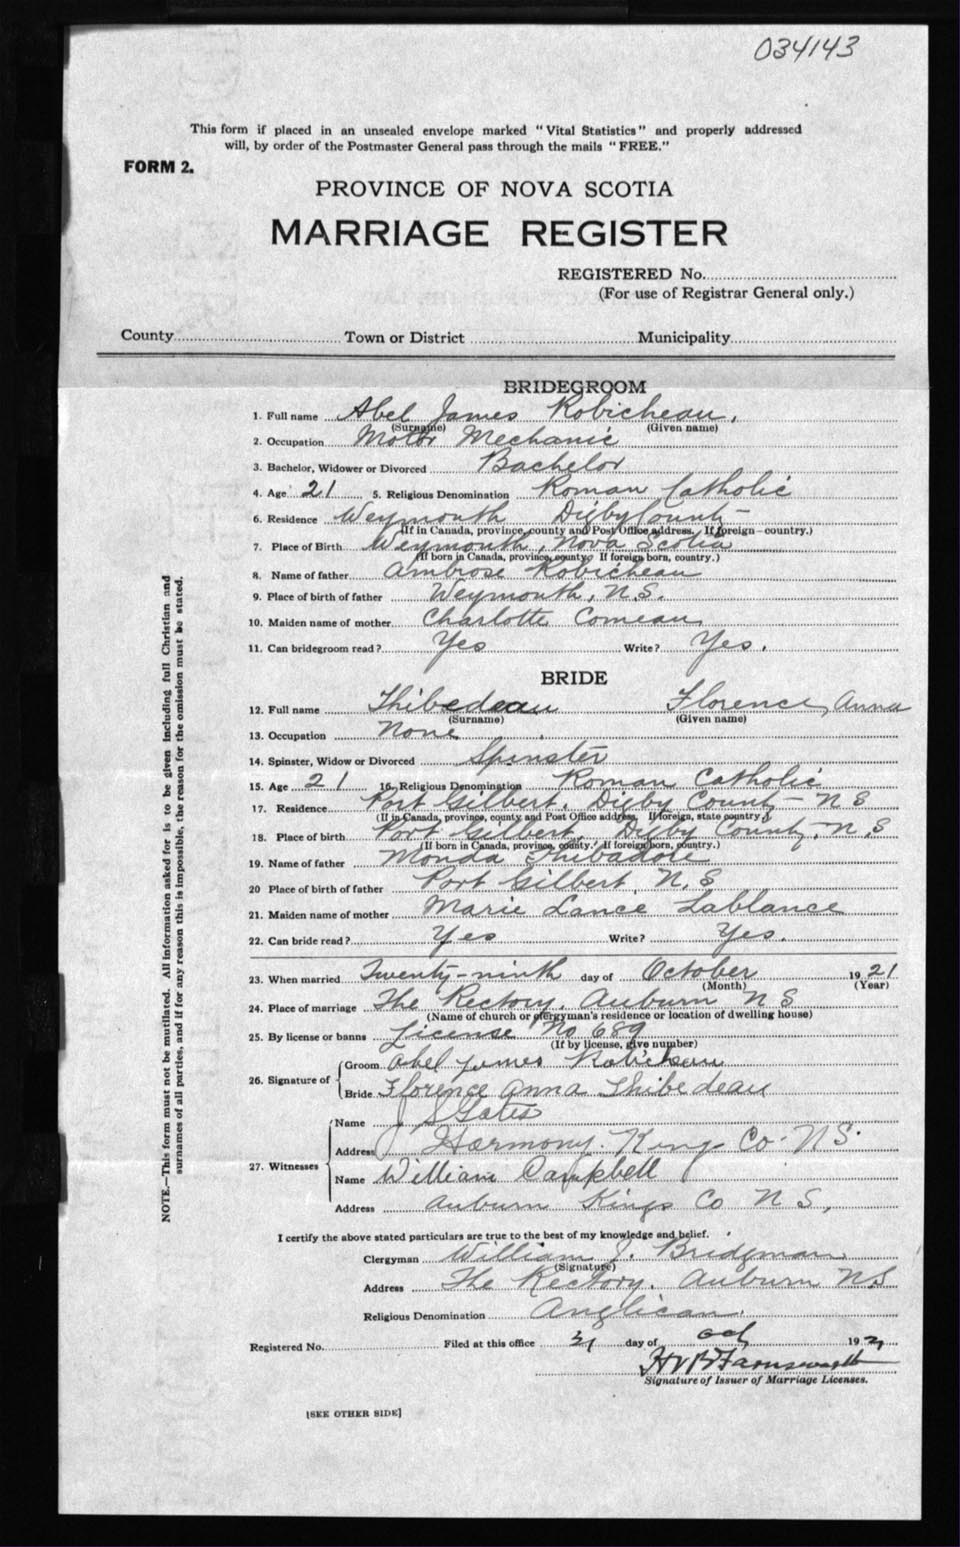 034143
This form if placed in an unsealed envelope marked "Vital Statistics" and properly addressed
will, by order of the Postmaster General pass through the mails "FREE."
FORM 2.
PROVINCE OF NOVA SCOTIA
MARRIAGE REGISTER
REGISTERED No.
(For use of Registrar General only.)
County Town or District Municipality
BRIDEGROOM
1. Full name Abel James Robicheau,
(Surname) (Given name)
2. Occupation Motor Mechanic
3. Bachelor, Widower or Divorced Bachelor
4. Age 21 5. Religious Denomination Roman Catholic
6. Residence Weymouth Digby County
(If in Canada, province, county and Post Office address, If foreign—country.)
7. Place of Birth Weymouth, Nova Scotia
(If born in Canada, province, county. If foreign born, country.)
8. Name of father Ambrose Robicheau
9. Place of birth of father Weymouth, N.S.
10. Maiden name of mother Charlotte Comeau
11. Can bridegroom read? Yes Write? Yes.
BRIDE
12. Full name Thibedeau Florence, Anna
(Surname) (Given name)
13. Occupation None
14. Spinster, Widow or Divorced Spinster
15. Age 21 16. Religious Denomination Roman Catholic
17. Residence Port Gilbert, Digby County - N S
(If in Canada, province, county and Post Office address, If foreign, state country.)
18. Place of birth Port Gilbert, Digby County, N,S
(If born in Canada, province, county. If foreign born, country.)
19. Name of father Monda Thibadore
20 Place of birth of father Port Gilbert, N,S
21. Maiden name of mother Marie Lance Lablance
22. Can bride read? Yes Write? Yes.
23. When married Twenty-ninth day of October 1921
(Month) (Year)
24. Place of marriage The Rectory, Auburn N S
(Name of church or clergyman's residence or location of dwelling house)
25. By license or banns License No 689
(If by license, give number)
26. Signature of Groom Abel James Robicheau
Bride Florence Anna Thibedeau
27. Witnesses Name J S Gates
Address Harmony. Kings Co. N S.
Name William Campbell
Address Auburn Kings Co N S,
I certify the above stated particulars are true to the best of my knowledge and belief.
Clergyman William J. Bridgman
(Signature)
Address The Rectory. Auburn N.S
Religious Denomination Anglican.
Registered No. Filed at this office 31 day of Oct 1921
Farnsworth
Signature of Issuer of Marriage Licenses.
[SEE OTHER SIDE]
NOTE.—This form must not be mutilated. All information asked for is to be given including full Christian and
surnames of all parties, and if for any reason this is impossible, the reason for the omission must be stated.